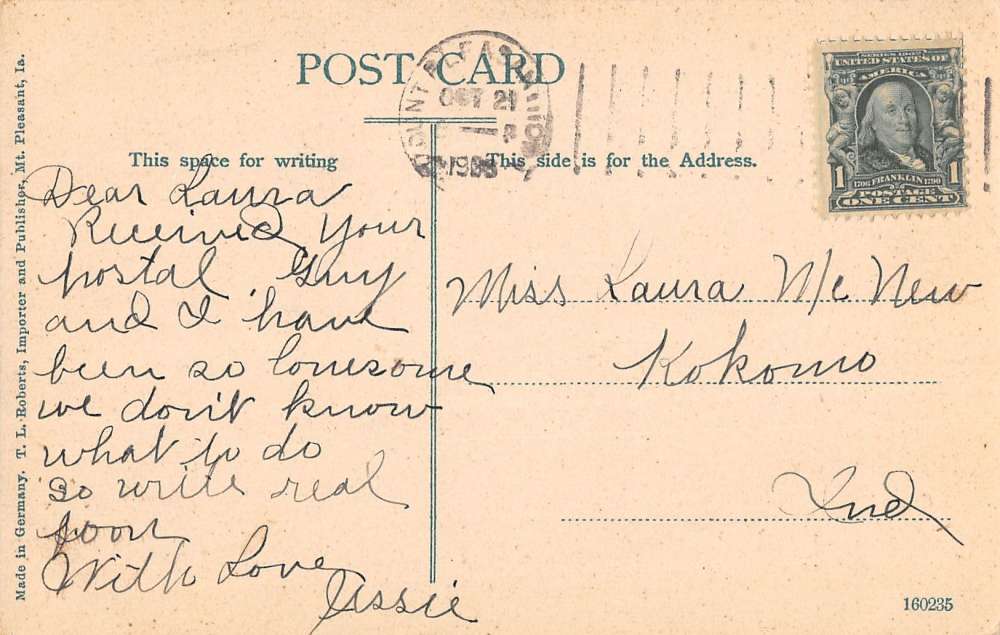 POST CARD
This space for writing
This side is for the Address.
Made in Germany. T. L. Roberts, Importer and Publisher, Mt. Pleasant, Ia.
MOUNT PLEASANT
OCT 21
IOWA
SERIES 1902
UNITED STATES OF
AMERICA
1 1
1706 FRANKLIN 1790
POSTAGE
ONE CENT
Dear Laura
Received your
postal Guy
and I have
been so lonesome
we don't know
what to do
so write real
soon
With Love
Jessie
Miss Laura McNew
Kokomo
Ind
160235